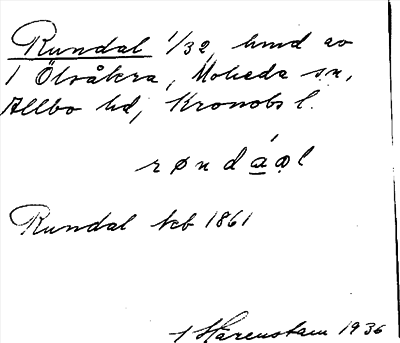 Rundal 1/32, hmd av
1 Ölvåkra, Moheda sn,
Allbo hd, Kronobs l.
røndáọl
Rundal kb 1861
Härenstam 1936